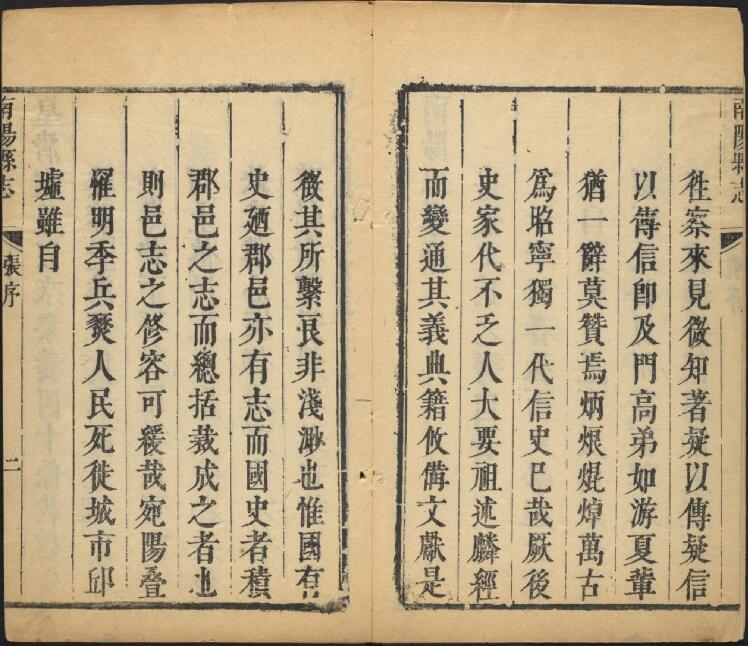 南陽縣志
徃察來見微知著疑以傳疑信
以傳信即及門高弟如游夏軰
猶一辭莫贊焉炳烺焜焯萬古
爲昭寧獨一代信史已哉厥後
史家代不乏人大要祖述麟經
而變通其義典籍攸備文獻是
徵其所繫良非淺渺也惟國有
史廼郡邑亦有志而國史者積
郡邑之志而總括裁成之者也
則邑志之修容可緩哉宛陽叠
罹明季兵燹人民死徙城市邱
墟雖自
南陽縣志 張序 二